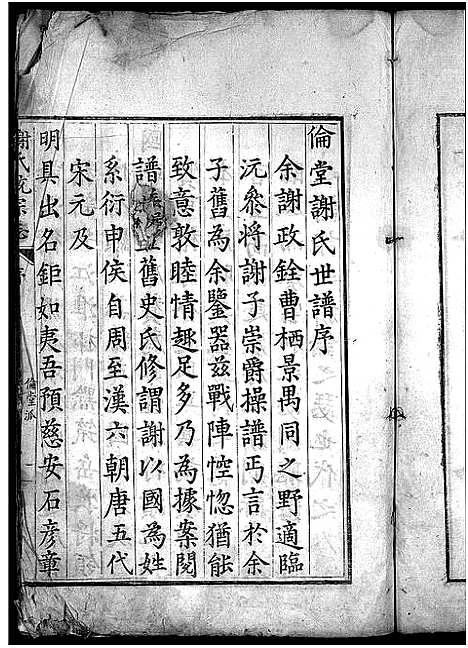 倫堂謝氏世譜序
余謝政銓曹栖景禺同之野適臨
沅叅將謝子崇爵操譜丐言於余
子舊為余鑒器兹戰陣悾惚猶能
致意敦睦情趣足多乃為據案閱
譜舊史氏修謂謝以國為姓
系衍申侯自周至漢六朝唐五代
宋元及
明具出名鉅如夷吾預慈安石彦章
謝氏統宗志
倫堂派